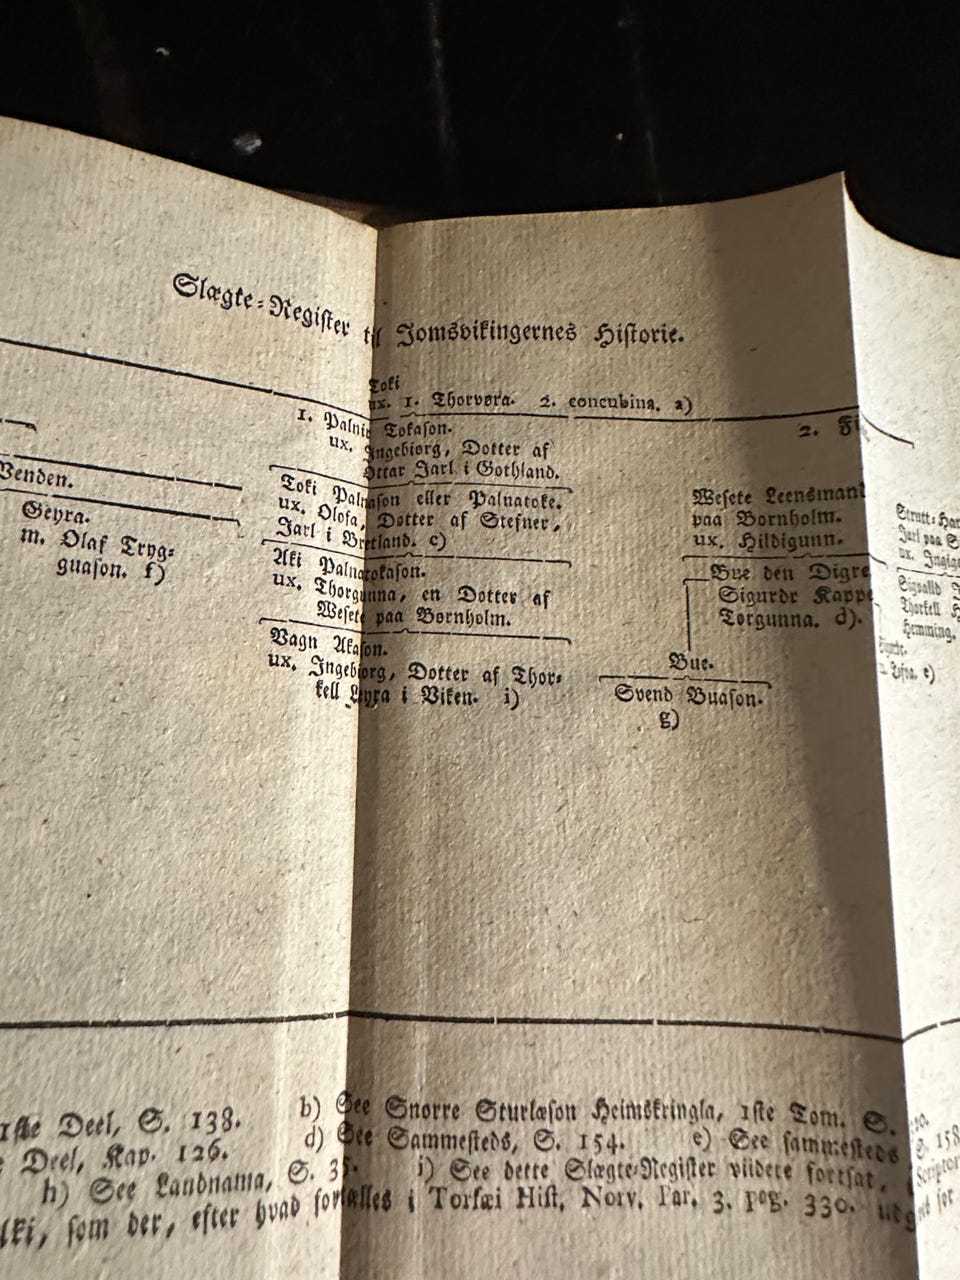 Slægte-Register til Jomsvikingernes Historie.
Toki
ux. 1. Thorvøra. 2. concubina. a)
1. Palnir Tokason.
ux. Ingebiørg, Dotter af
Ottar Jarl i Gothland.
Toki Palnason eller Palnatoke.
ux. Olofa, Dotter af Stefner,
Jarl i Bretland. c)
Aki Palnatokason.
ux. Thorgunna, en Dotter af
Wesete paa Bornholm.
Vagn Akason.
ux. Ingebiorg, Dotter af Thor-
kell Leyra i Viken. i)
Venden.
Geyra.
m. Olaf Tryg-
guason. f)
2.
Wesete Leensmand
paa Bornholm.
ux. Hildigunn.
Bue den Digre
Sigurdr Kappe
Torgunna. d).
Bue.
Svend Buason.
g)
Strutt-Har
Jarl paa
ux. Ingige
Sigvalld
Thorkell
Hemming.
e)
1ste Deel, S. 138. b) See Snorre Sturlæson Heimskringla, 1ste Tom. S.
Deel, Kap. 126. d) See Sammesteds, S. 154. e) See sammesteds S. 158
h) See Landnama, S. i) See dette Slægte-Register viidere fortsat,
som der, efter hvad fortælles i Torfæi Hist. Norv. Par. 3. pag. 330.